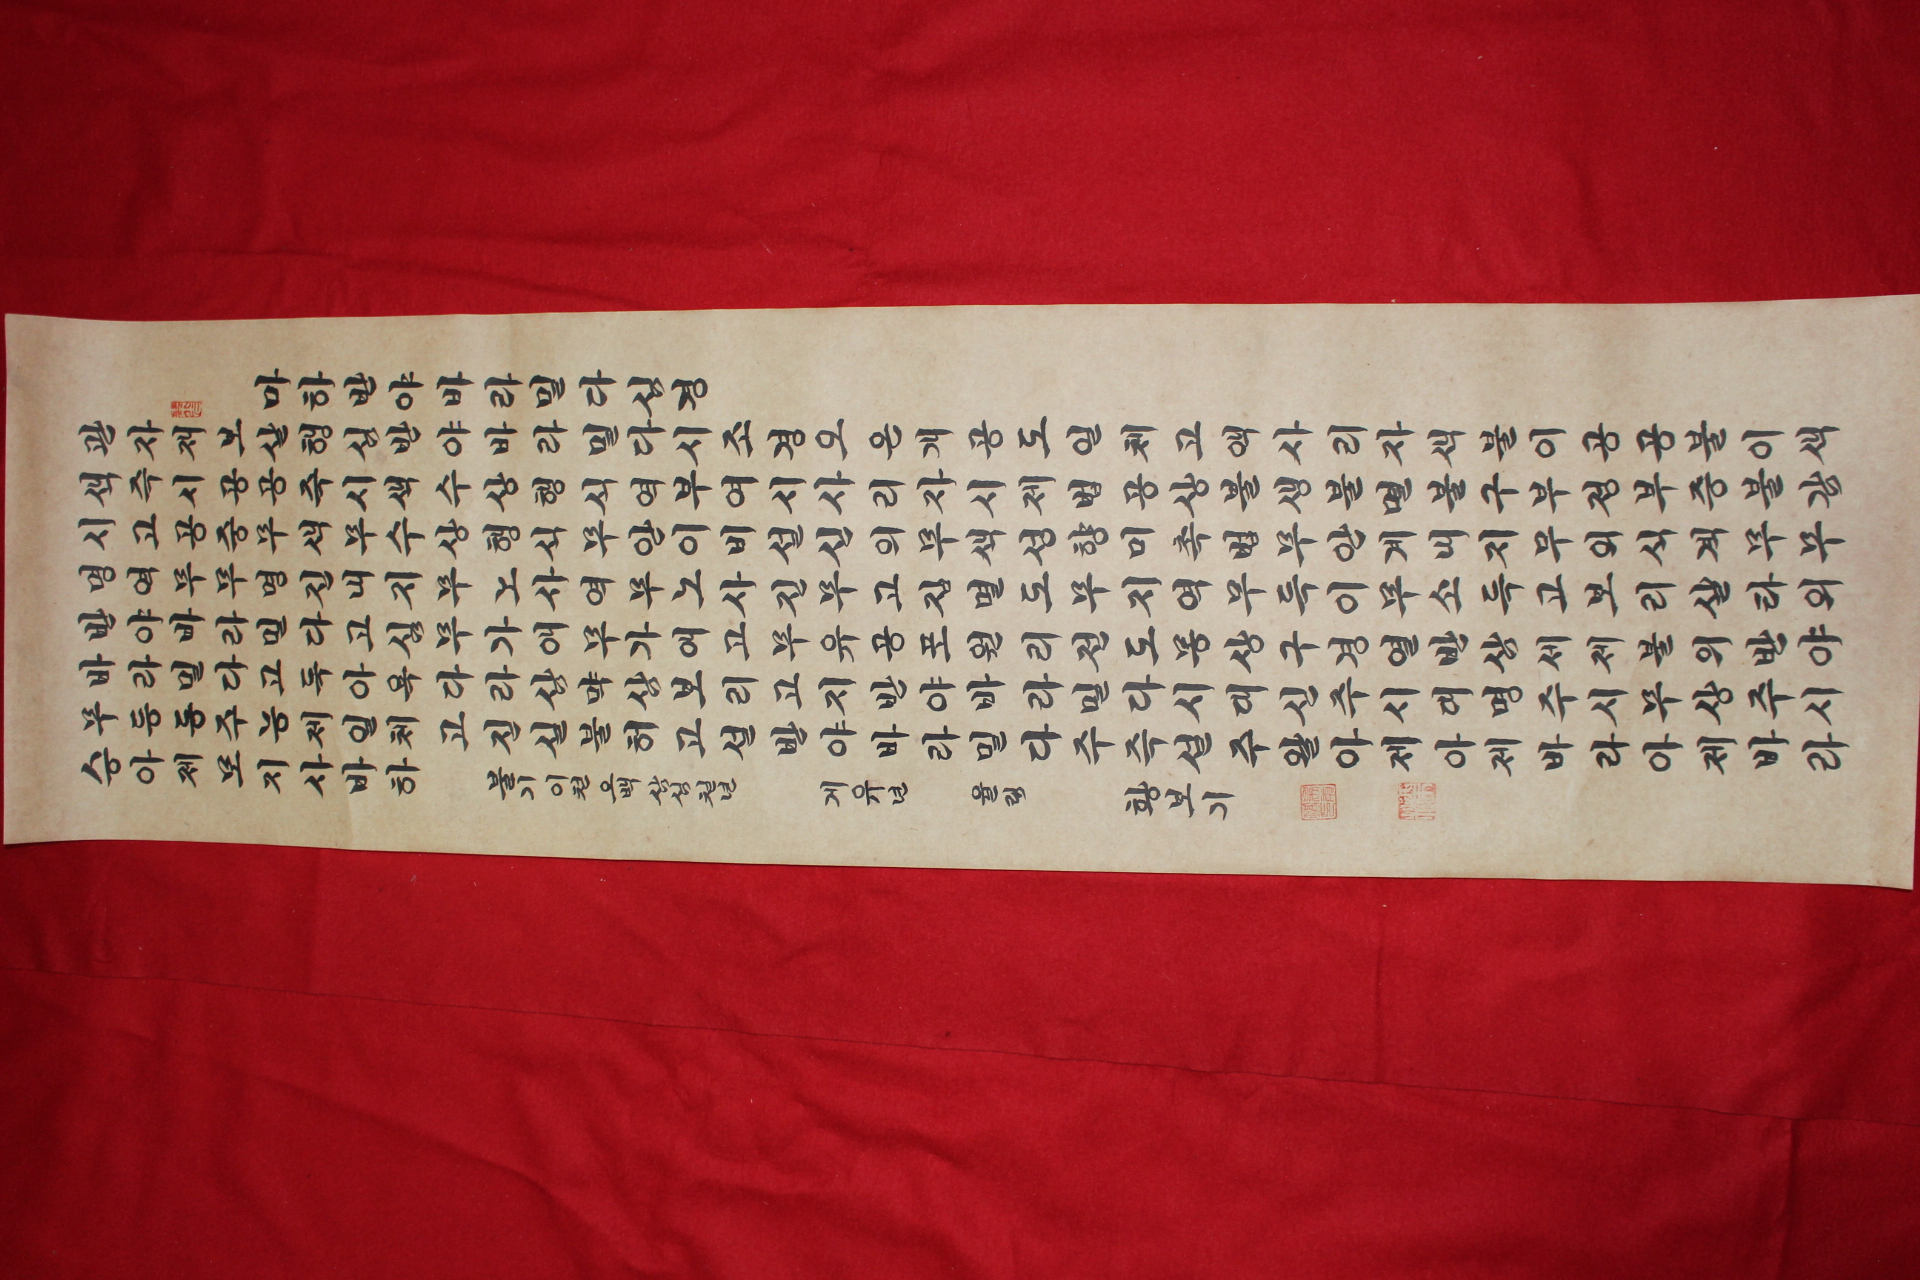 마하반야바라밀다심경
관자재보살행심반야바라밀다시조경오온개공도일체고액사리자색불이공공불이색
색즉시공공즉시색수상행식역부여시사리자시제법공상불생불멸불구부정부증불감
시고공중무색무수상행식무안이비설신의무색성향미촉법무안계내지무의식계무무
명역무무명진내지무노사역무노사진무고집멸도무지역무득이무소득고보리살타의
반야바라밀다고심무가애무가애고무유공포원리전도몽상구경열반삼세제불의반야
바라밀다고득아욕다라삼먁삼보리고지반야바라밀다시대신주시대명주시무상주시
무등등주능제일체고진실불허고설반야바라밀다주즉설주왈아제아제바라아제바라
승아제모지사바하
불기 이천 오백 삼십 칠년 계유년 율림 황보기